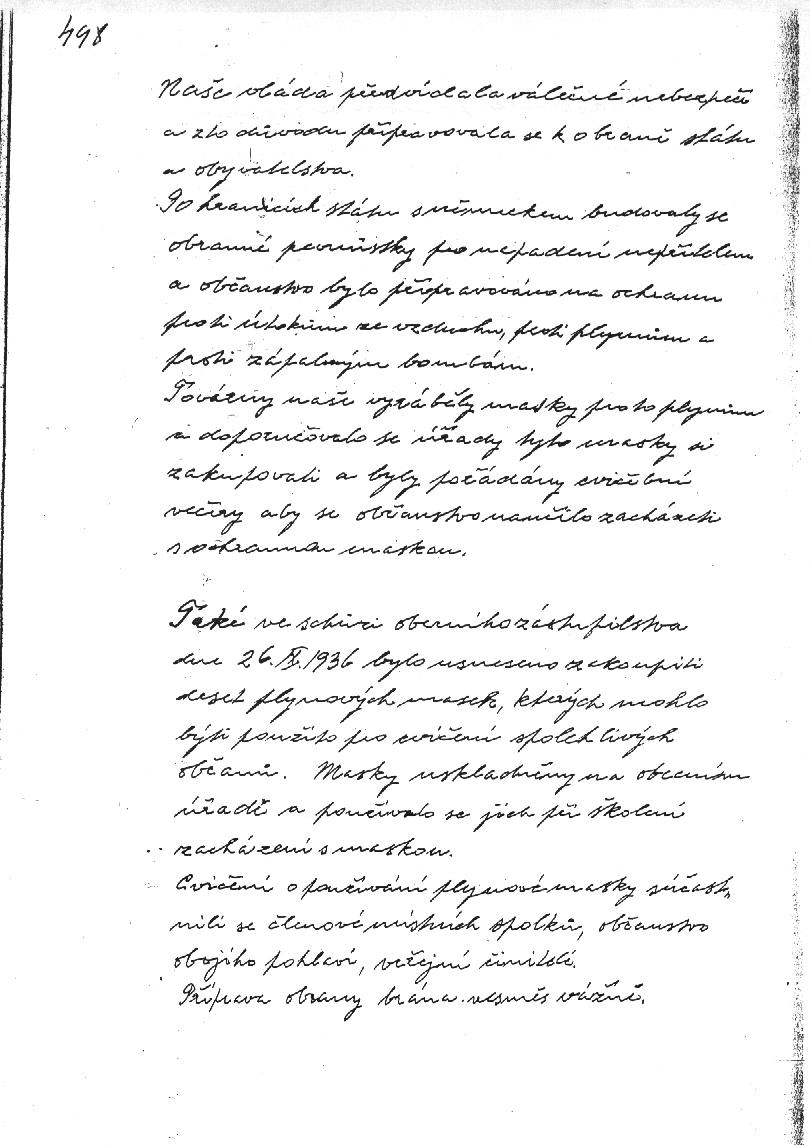 498
Naše vláda předvídala válečné nebezpečí
a z to důvodu připravovala se k obraně státu
a obyvatelstva.
Po hranicích státu s německem budovaly se
obranné pevnůstky pro nepadení nepřítelem
a občanstvo bylo připravováno na ochranu
proti útokům ze vzduchu, proti plynům a
proti zápalným bombám.
Továrny naše vyráběly masky proto plynům
a doporučovalo se úřady tyto masky si
zakupovati a byly pořádány cvičební
večery aby se občanstvo naučilo zacházeti
s ochrannou maskou.
Také ve schůzi obecního zástupitelstva
dne 26. X. 1936 bylo usneseno zakoupiti
deset plynových masek, kterých mohlo
býti použito pro cvičení spolehlivých
občanů. Masky uskladněny na obecním
úřadě a používalo se jich při školení
zacházení s maskou.
Cvičení o používání plynové masky súčast-
nili se členové místních spolků, občanstvo
obojího pohlaví, veřejní činitelé.
Příprava obrany brána vesměs vážně.